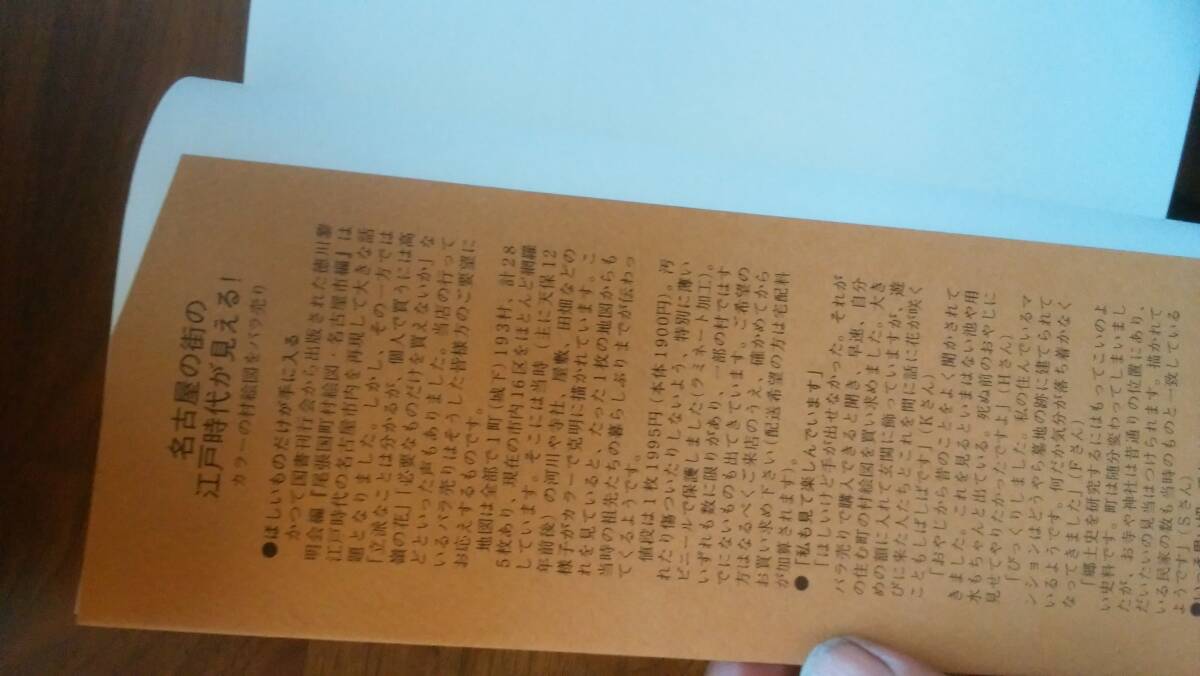 名古屋の街の
江戸時代が見える!
カラーの村絵図をバラ売り
●ほしいものだけが手に入る
かつて国書刊行会から出版された徳川黎
明会編『尾張国町村絵図・名古屋市編』は
江戸時代の名古屋市内を再現して大きな話
題となりました。しかし、その一方では
「立派なことは分かるが、個人で買うには高
嶺の花」「必要なものだけを買えないか」な
どといった声もありました。当店の行って
いるバラ売りはそうした皆様方のご要望に
お応えするものです。
地図は全部で1町(城下)193村、計28
5枚あり、現在の市内16区をほとんど網羅
しています。そこには当時(主に天保12
年前後)の河川や寺社、屋敷、田畑などの
様子がカラーで克明に描かれています。こ
れを見ていると、たった1枚の地図からも
当時の祖先たちの暮らしぶりまでが伝わっ
てくるようです。
値段は1枚1995円(本体1900円)。汚
れたり傷ついたりしないよう、特別に薄い
ビニールで保護しました(ラミネート加工)。
いずれも数に限りがあり、一部の村ではす
でにないものも出てきています。ご希望の
方はなるべくご来店のうえ、確かめてから
お買い求め下さい(配送希望の方は宅配料
が加算されます)。
●「私も見て楽しんでいます」
「ほしいけど手が出せなかった。それが
バラ売りで購入できると聞き、早速、自分
の住む町の村絵図を買い求めました。大き
めの額に入れて玄関に飾っていますが、遊
びに来た人たちとこれを間に話に花が咲く
こともしばしばです」(Kさん)
「おやじから昔のことをよく聞かされて
きました。これを見るといまはない池や用
水もちゃんと出ている。死ぬ前のおやじに
見せてやりたかったですよ」(Hさん)
「びっくりしました。私の住んでいるマ
ンションはどうやら墓地の跡に建てられて
いるようです。何だか気分が落ち着かなく
なってきました」(Fさん)
「郷土史を研究するにはもってこいのよ
い史料です。町は随分変わってしまいまし
たが、お寺や神社は昔通りの位置にあり、
だいたいの見当はつけられます。描かれて
いる民家の数も当時のものと一致している
ようです」(Sさん)